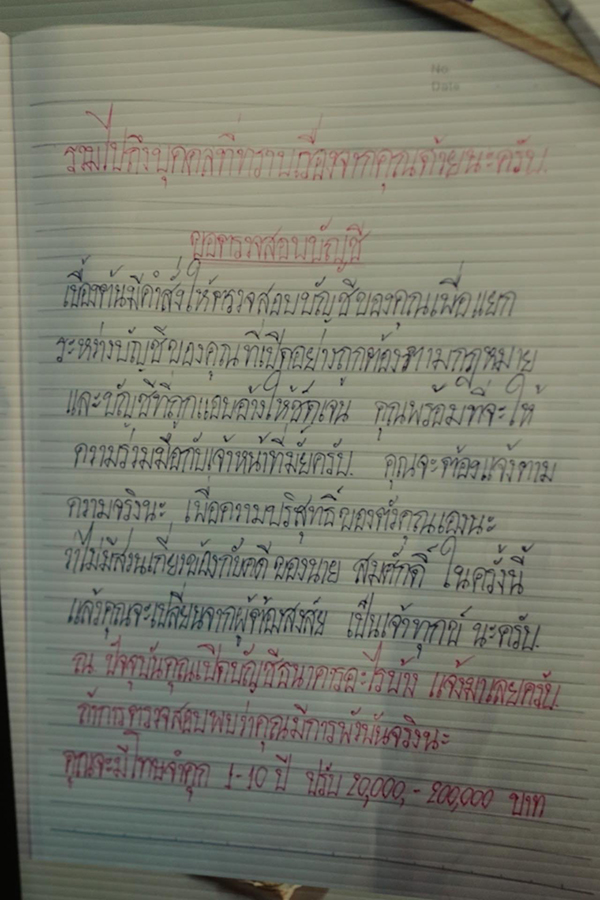 No.
Date
รวมไปถึงบุคคลที่ทราบเรื่องจากคุณด้วยนะครับ.
ขอตรวจสอบบัญชี
เบื้องต้นมีคำสั่งให้ตรวจสอบบัญชีของคุณเพื่อแยก
ระหว่างบัญชีของคุณที่เปิดอย่างถูกต้องตามกฎหมาย
และบัญชีที่ถูกแอบอ้างให้ชัดเจน คุณพร้อมที่จะให้
ความร่วมมือกับเจ้าหน้าที่มั้ยครับ. คุณจะต้องแจ้งตาม
ความจริงนะ เพื่อความบริสุทธิ์ของตัวคุณเองนะ
ว่าไม่มีส่วนเกี่ยวข้องกับคดีของนาย สมศักดิ์ ในครั้งนี้
แล้วคุณจะเปลี่ยนจากผู้ต้องสงสัย เป็นเจ้าทุกข์ นะครับ.
ณ ปัจจุบันคุณเปิดบัญชีธนาคารอะไรบ้าง แจ้งมาเลยครับ.
ถ้าการตรวจสอบพบว่าคุณมีการพัวพันจริงนะ
คุณจะมีโทษจำคุก 1-10 ปี ปรับ 20,000,-200,000 บาท